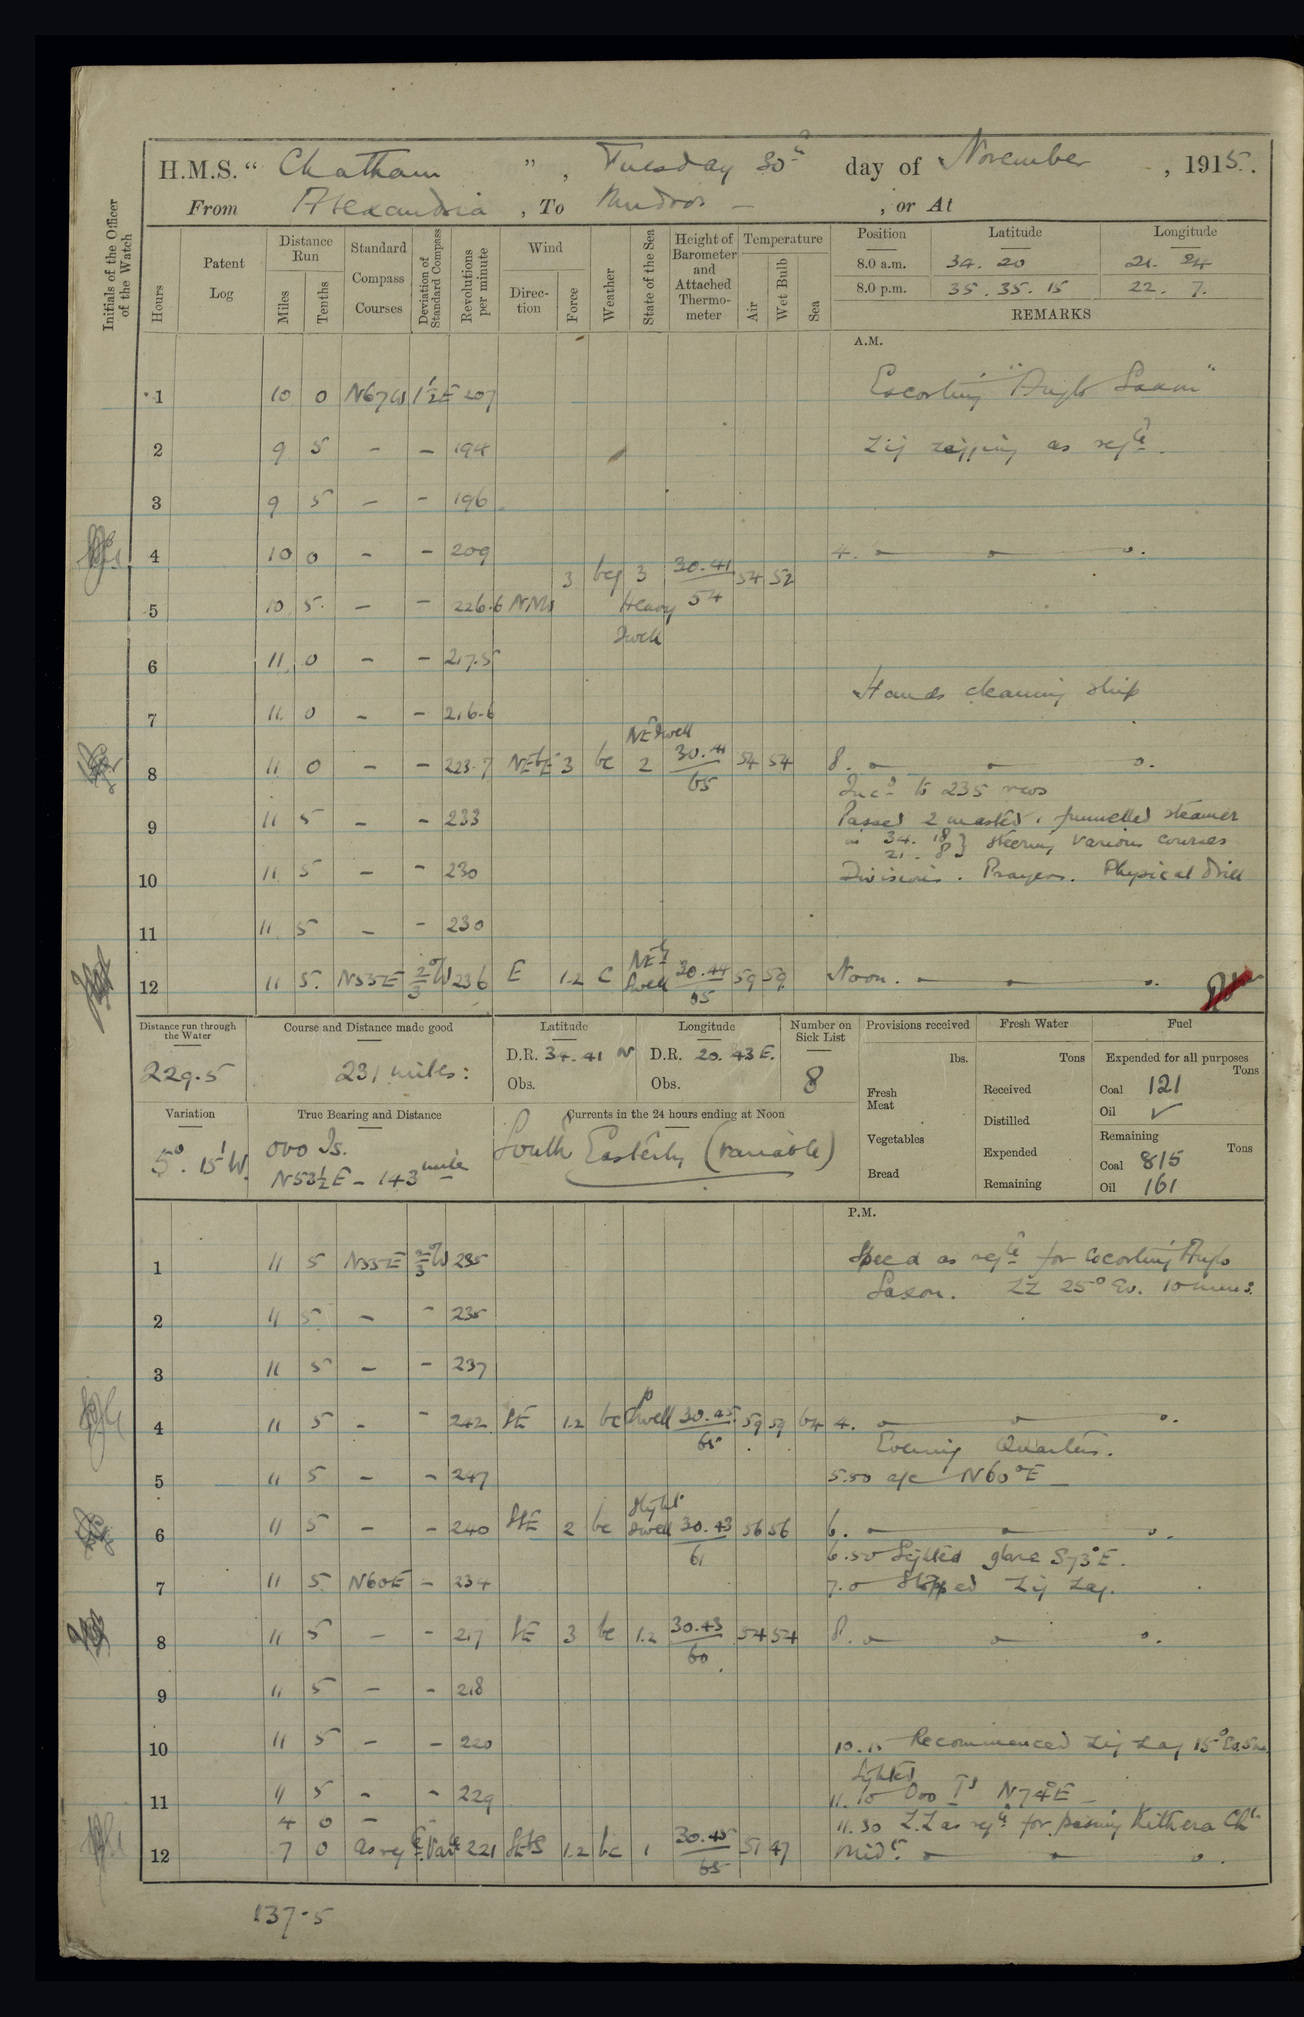 H.M.S. “ Chatham ”, Tuesday 30th day of November, 1915.
From Alexandria, To Mudros — , or At
Initials of the Officer of the Watch
Hours
Patent Log
Distance Run
Miles
Tenths
Standard Compass Courses
Deviation of Standard Compass
Revolutions per minute
Wind
Direction
Force
Weather
State of the Sea
Height of Barometer and Attached Thermometer
Temperature
Air
Wet Bulb
Sea
Position Latitude Longitude
8.0 a.m. 34. 20 21. 24
8.0 p.m. 35. 35. 15 22. 7.
REMARKS
A.M.
1 10 0 N67W 1½E 207 Escorting "Anglo Saxon"
2 9 5 - - 194 Zig zagging as reqte.
3 9 5 - - 196
4 10 0 - - 209 4.
3 bcq 3 30.41 54 52
5 10 5 - - 226.6 NNW Heavy 54
Swell
6 11 0 - - 217.5
Hands cleaning ship
7 11 0 - - 216.6
NE Swell
8 11 0 - - 223.7 NEbE 3 bc 2 30.41 65 54 54 8.
Incd to 235 revs
9 11 5 - - 233 Passed 2 masted 1 funnelled steamer
in 34. 18 21. 8 } steering various courses
10 11 5 - - 230 Divisions. Prayers. Physical Drill
11 11 5 - - 230
12 11 5. N55E ⅔°W 236 E 1.2 C NEly Swell 30.44 65 59 59 Noon.
Distance run through the Water
229.5
Course and Distance made good
231 miles:
Latitude
D.R. 34. 41 N
Obs.
Longitude
D.R. 20. 43 E.
Obs.
Number on Sick List
8
Provisions received
lbs.
Fresh Meat
Vegetables
Bread
Fresh Water
Tons
Received
Distilled
Expended
Remaining
Fuel
Expended for all purposes
Tons
Coal 121
Oil ✓
Remaining
Tons
Coal 815
Oil 161
Variation
5°. 15' W.
True Bearing and Distance
Ovo Is.
N53½E - 143 mile
Currents in the 24 hours ending at Noon
South Easterly (variable)
P.M.
1 11 5 N55E ⅔°W 235 Speed as reqte for escorting Anglo
Saxon. ZZ 25° Ev. 10 mins.
2 11 5 - - 235
3 11 5 - - 237
4 11 5 - - 242 SE 1.2 bc Swell 30.45 65 59 59 64 4.
Evening Quarters.
5 11 5 - - 247 5.50 a/c N60°E
6 11 5 - - 240 SSE 2 bc Slight swell 30.43 61 56 56 6.
6.50 Sighted glare S73°E.
7 11 5 N60E - 234 7.0 Stopped Zig Zag.
8 11 5 - - 217 SE 3 bc 1.2 30.43 60 54 54 8.
9 11 5 - - 218
10 11 5 - - 220 10.15 Recommenced Zig Zag 15° Ev. 5 m
Sighted
11 11 5 - - 229 11.10 Ovo Id N74°E
4 0 - - 11.30 Z.Z as reqte for passing Kithera Chl.
12 7 0 As reqte Varle 221 SEbS 1.2 bc 1 30.45 65 51 47 Midt.
137.5